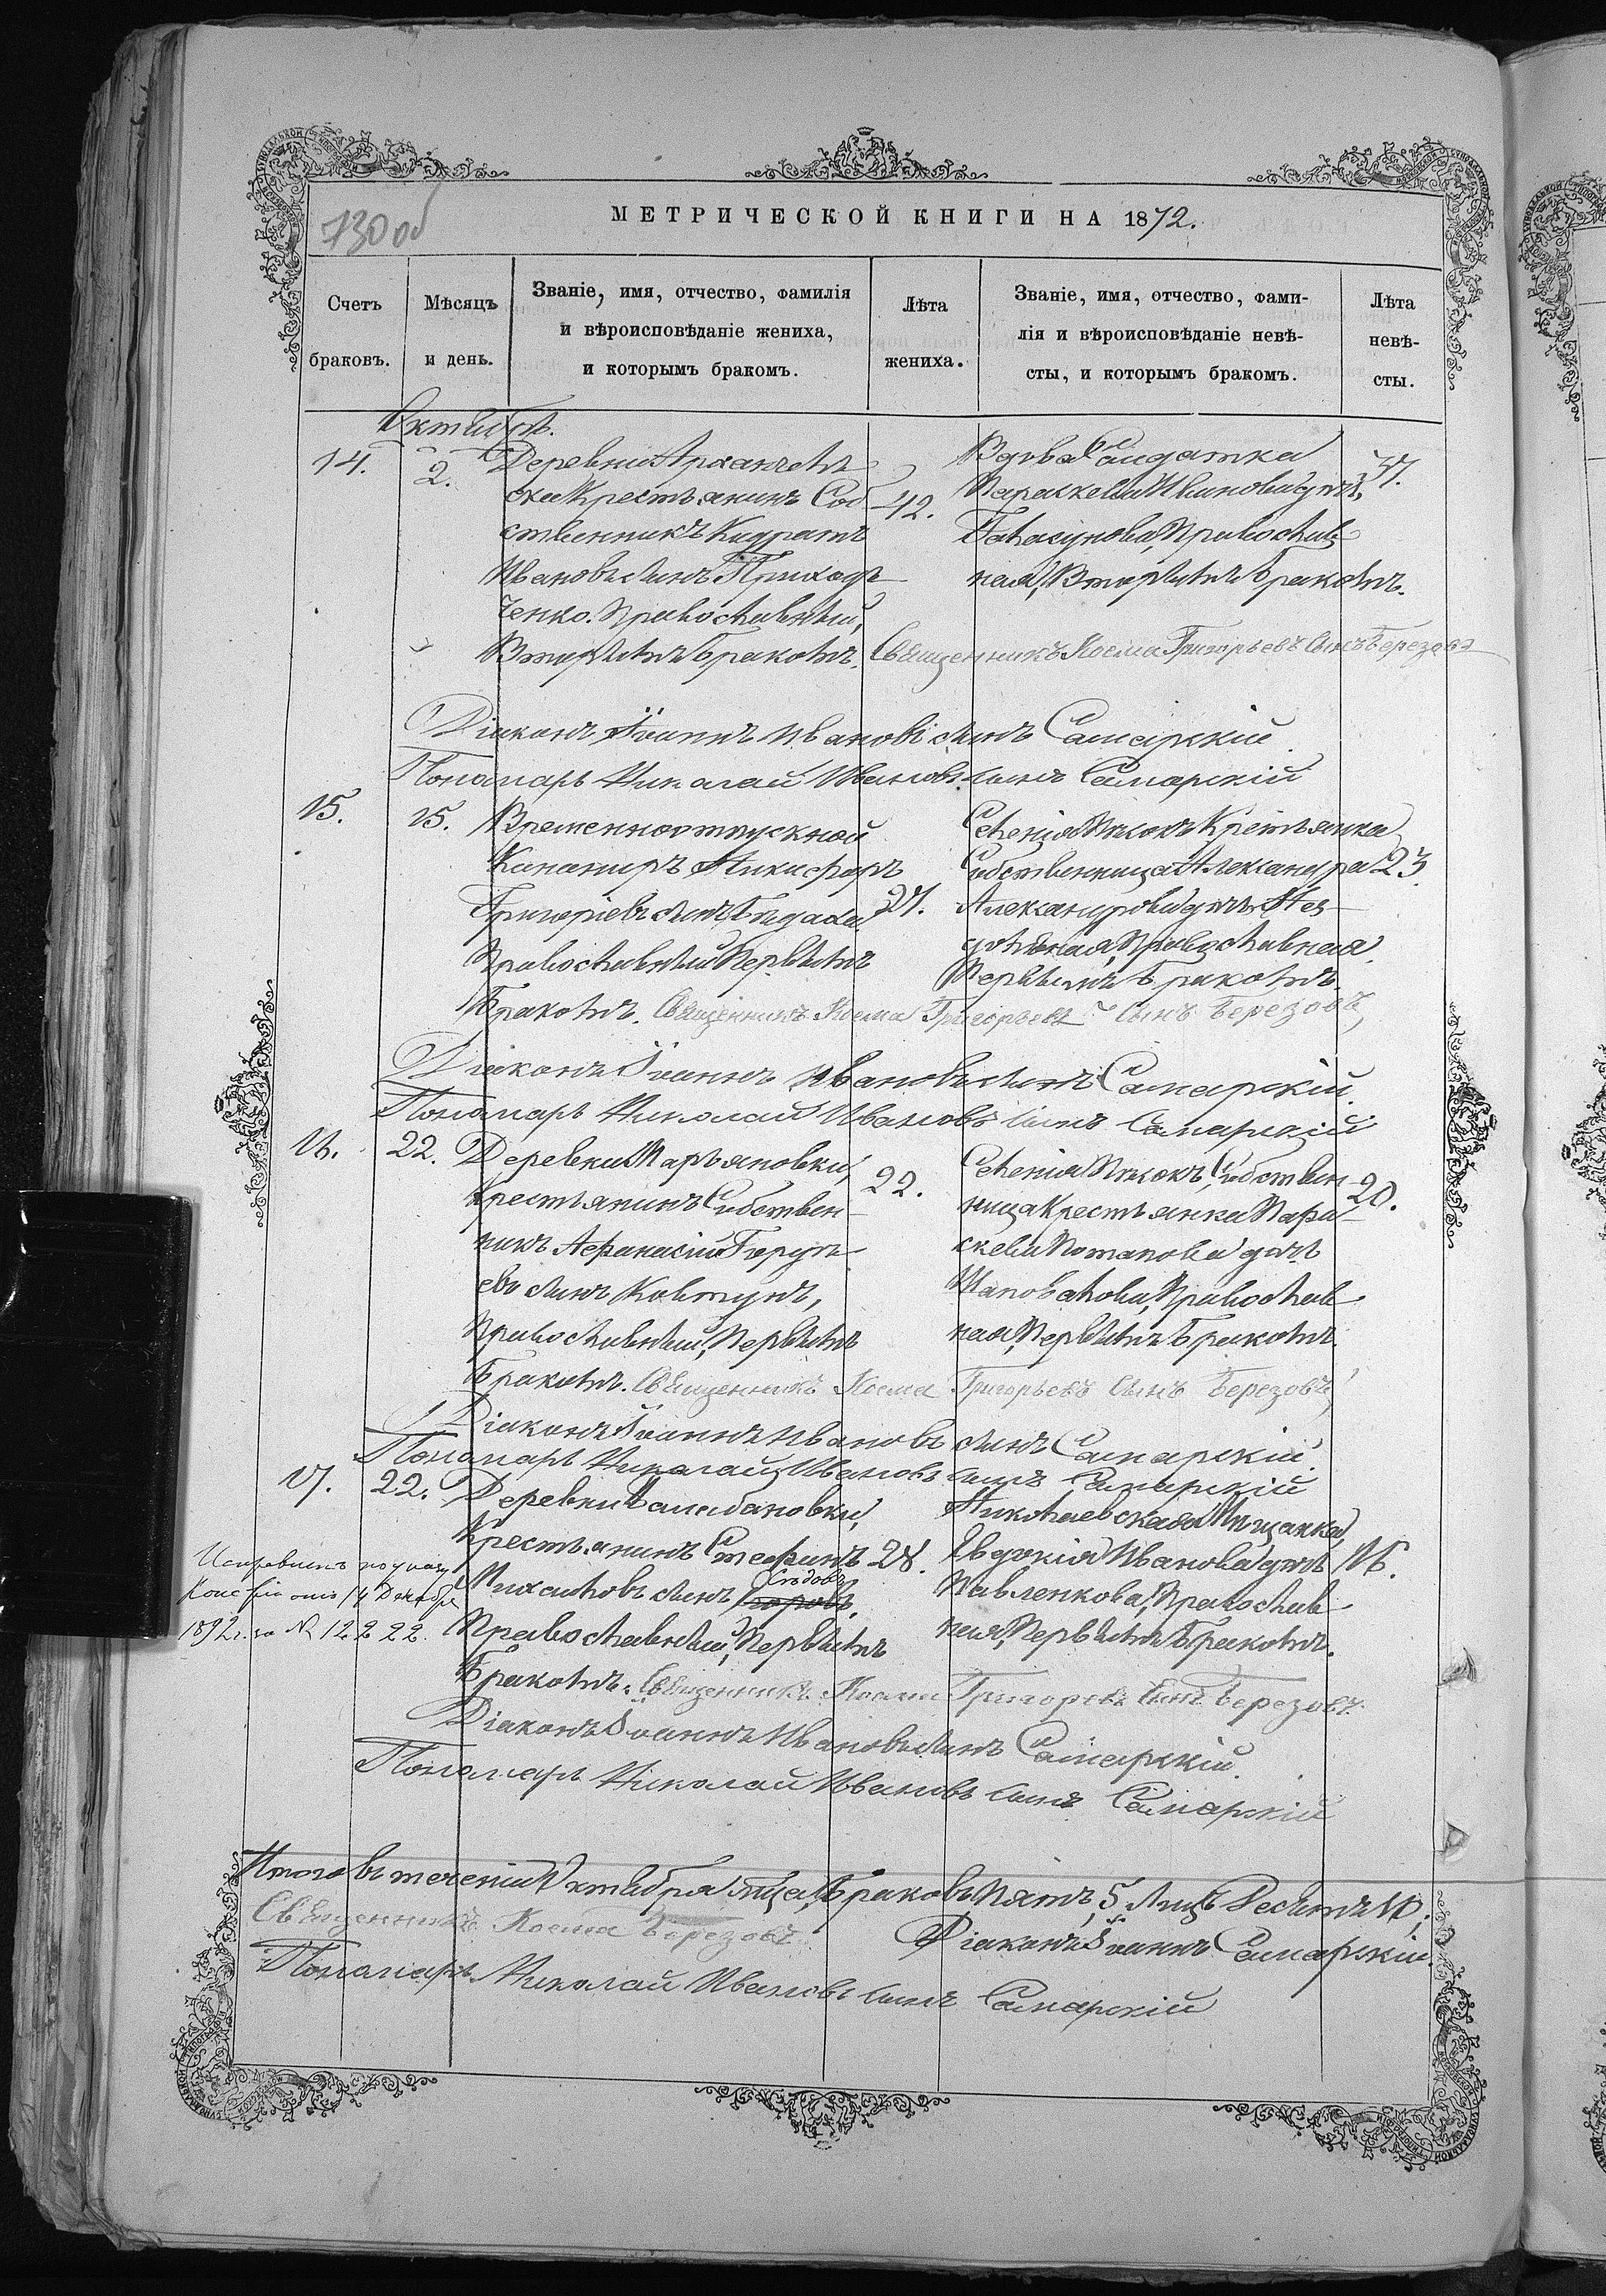 730 об
МЕТРИЧЕСКОЙ КНИГИ НА 1872.
Счетъ браковъ.
Мѣсяцъ и день.
Званіе, имя, отчество, фамилія
и вѣроисповѣданіе жениха,
и которымъ бракомъ.
Лѣта жениха.
Званіе, имя, отчество, фами-
лія и вѣроисповѣданіе невѣ-
сты, и которымъ бракомъ.
Лѣта невѣ-
сты.
Октябрь.
14.
2.
Деревни Архангель
ска Крестьянинъ Соб
ственникъ Кидратъ
Ивановъ сынъ Приходь
ченко. Православный,
Вторымъ бракомъ.
42.
Вдова Салдатка
Параскева Иванова дочь,
православ
ная, Вторымъ бракомъ.
37.
Священникъ Косма Григорьевъ Сынъ Березовъ
Діаконъ Іоаннъ Ивановъ сынъ Самарскій.
Пономарь Николай Ивановъ сынъ Самарскій
15.
15.
Временноотпускной
Канониръ Никифоръ
Григоріевъ сынъ
Православный Первымъ
Бракомъ.
27.
Селенія Пѣсокъ Крестьянка
Собственница Александра
Александрова дочь
Православная.
Первымъ бракомъ.
23.
Священникъ Косма Григорьевъ Сынъ Березовъ
Діаконъ Іоаннъ Ивановъ сынъ Самарскій.
Пономарь Николай Ивановъ сынъ Самарскій
16.
22.
Деревни Марьяновки,
Крестьянинъ Собствен-
никъ Афанасій
евъ сынъ Ковтунъ,
Православный, Первымъ
Бракомъ.
22.
Селенія Пѣсокъ, Собствен
ница Крестьянка Пара-
скева Потапова дочь
Шаповалова, Православ-
ная, Первымъ бракомъ.
20.
Священникъ Косма Григорьевъ Сынъ Березовъ
Діаконъ Іоаннъ Ивановъ сынъ Самарскій.
Пономарь Николай Ивановъ сынъ Самарскій
17.
22.
Деревни
Крестьянинъ Стефанъ
Михайловъ сынъ Сѣдовъ
Православный, Первымъ
Бракомъ.
28.
Николаевская Мѣщанка,
Евдокія Иванова дочь
Павленкова, Православ-
ная, Первымъ Бракомъ.
16.
Исправленъ по указу
Консisторіи отъ 14 Декабря
1892 г. за № 12222.
Священникъ Косма Григоревъ Сынъ Березовъ.
Діаконъ Іоаннъ Ивановъ сынъ Самарскій.
Пономарь Николай Ивановъ сынъ Самарскій
Итого въ теченіи Октября мѣсяца, Браковъ Пять, 5, Лицъ Десять 10.
Священникъ Косма Березовъ.
Діаконъ Іоаннъ Самарскій.
Пономарь Николай Ивановъ сынъ Самарскій